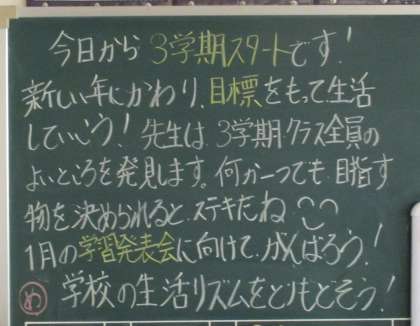 今日から3学期スタートです!
新しい年にかわり、目標をもって生活
していこう!先生は、3学期クラス全員の
よいところを発見します。何か一つでも、目指す
物を決められると、ステキだね
1月の学習発表会に向けて、がんばろう!
め 学校の生活リズムをとりもどそう!